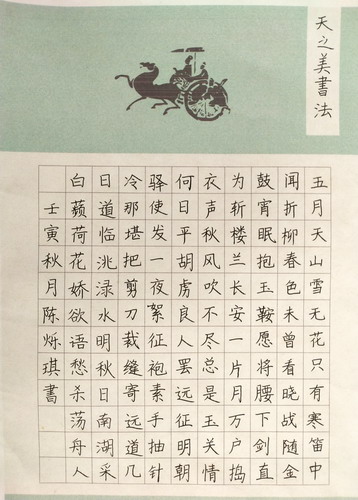 天之美書法
五月天山雪无花只有寒笛中
闻折柳春色未曾看晓战随金
鼓宵眠抱玉鞍愿将腰下剑直
为斩楼兰长安一片月万户捣
衣声秋风吹不尽总是玉关情
何日平胡虏良人罢远征明朝
驿使发一夜絮征袍素手抽针
冷那堪把剪刀裁缝寄远道几
日道临洮渌水明秋日南湖采
白蘋荷花娇欲语愁杀荡舟人
壬寅秋月陈烁琪書